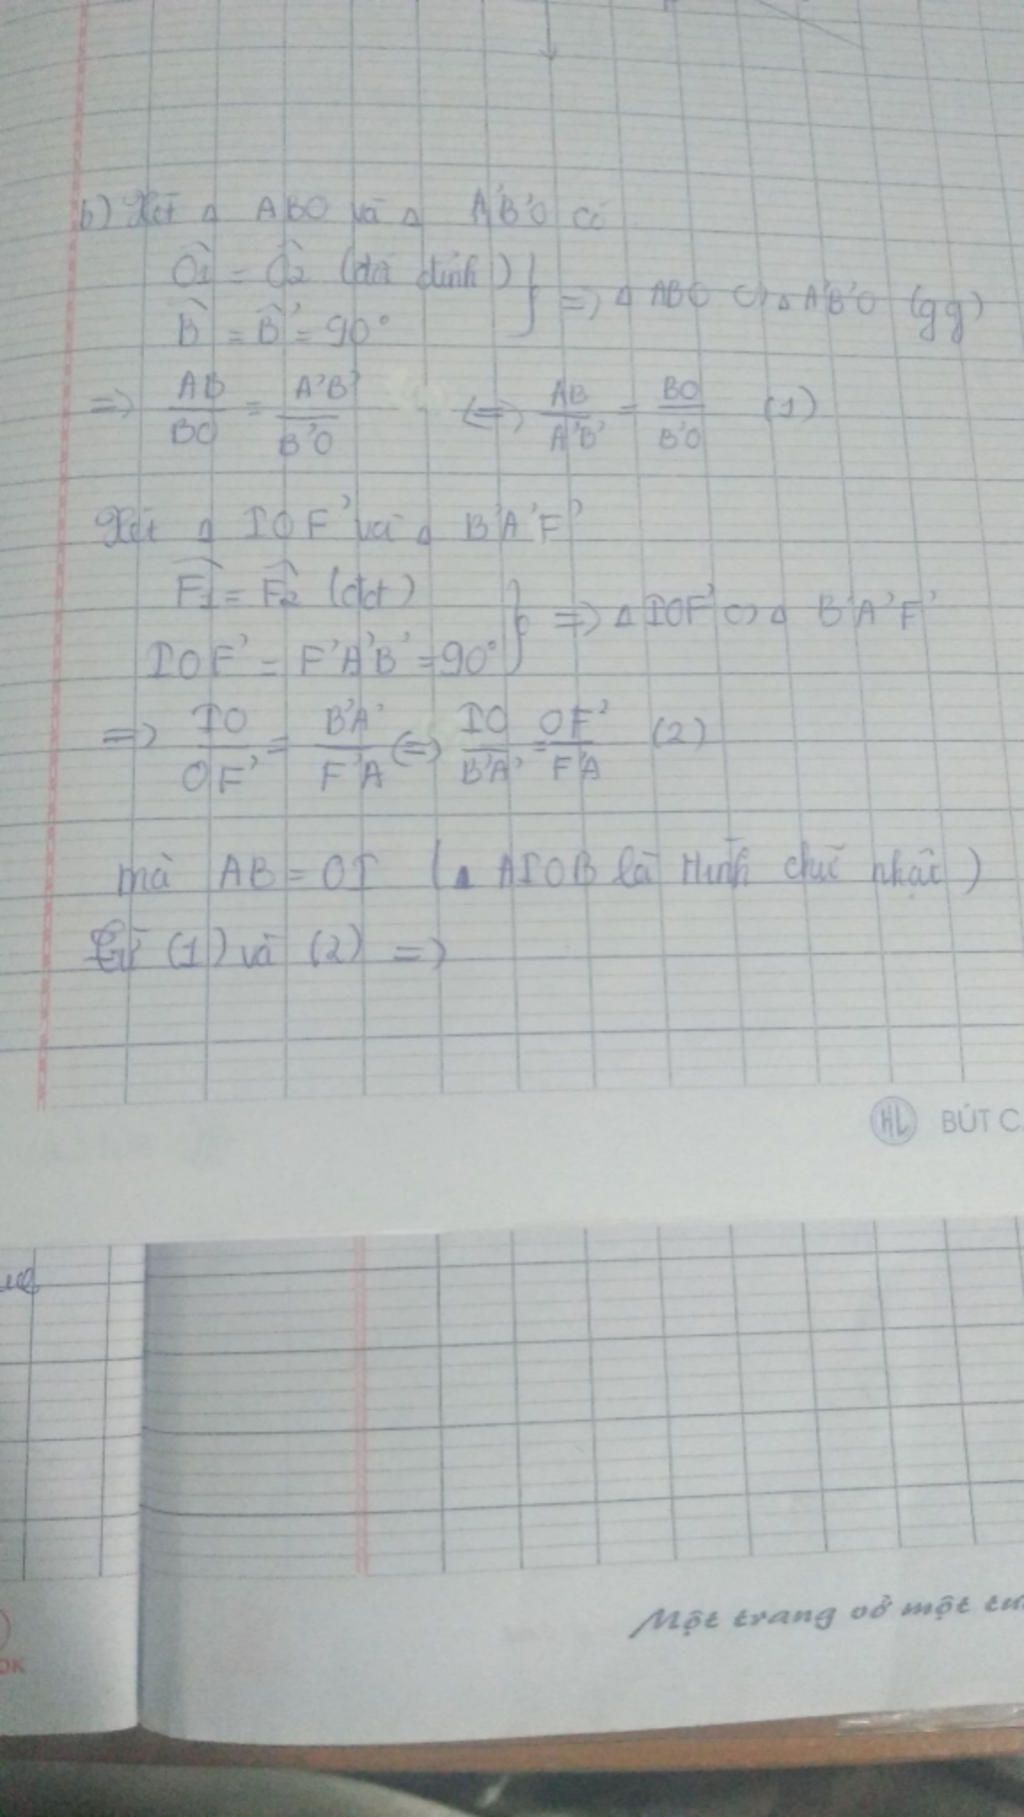 b) Xét Δ ABO và Δ A'B'O có
Ô1 = Ô2 (đối đỉnh)
B̂ = B̂' = 90°
} => Δ ABO ∽ Δ A'B'O (gg)
=> AB/BO = A'B'/B'O <=> AB/A'B' = BO/B'O (1)
Xét Δ IOF' và Δ B'A'F'
F̂1 = F̂2 (đđ)
IOF' = F'A'B' = 90°
} => Δ IOF' ∽ Δ B'A'F'
=> IO/OF' = B'A'/F'A <=> IO/B'A' = OF'/F'A (2)
mà AB = OI ( AIOB là hình chữ nhật )
Từ (1) và (2) =>
HL BÚT C
Một trang vở một
OK